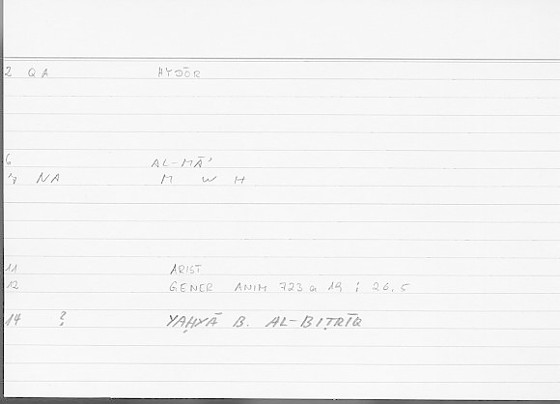 2 QA HYDŌR
6 AL-MĀʾ
7 NA M W H
11 ARIST
12 GENER ANIM 723 a 19 ; 26,5
14 ? YAḤYĀ B. AL-BIṬRĪQ